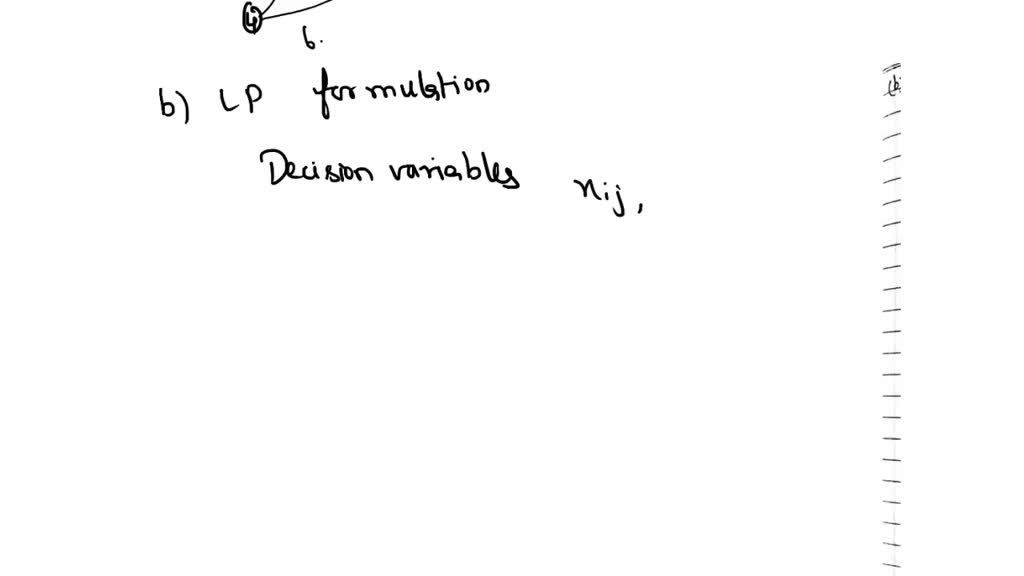 4
6.
b) LP formulation
Decision variables xij,
(b)